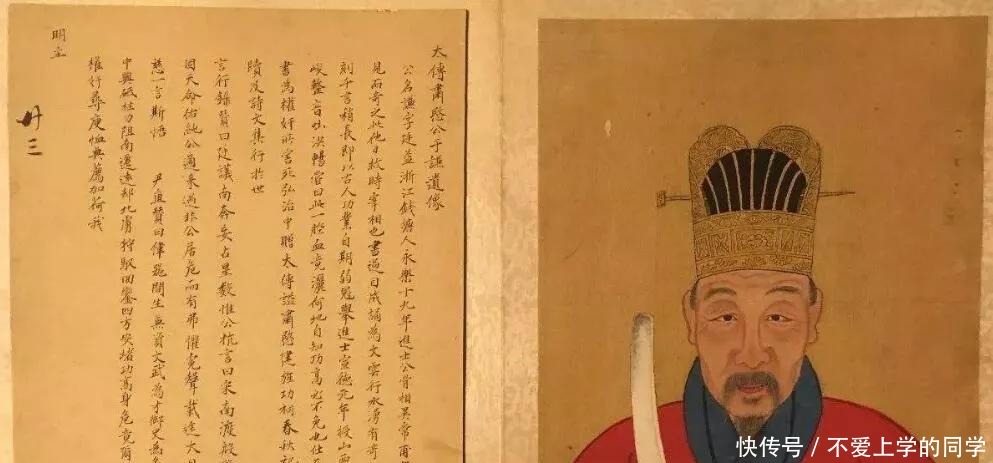 太傅肅愍公于謙遺像
公名謙字廷益浙江錢塘人永樂十九年進士公骨相異常甫
見而奇之此他日救時宰相也書過目成誦為文雲行水湧有奇
刻千言稍長即以古人功業自期弱冠舉進士宣德元年授山西
峻整音吐洪暢嘗曰此一腔血竟灑何地自知功高必不免也仕
書為權奸所害死弘治中贈太傅諡肅愍建旌功祠春秋
蹟及詩文集行於世
言行錄贊曰廷議南奔妄占星數惟公抗言曰宋南渡殷
回天命佑純公適來遇非公居危而有弗懼竟聲載途大
慈一言斯悟 尹直贊曰偉器間生無資文武為才卿久為
中興砥柱力阻南遷遠卻北虜狩馭回鑾四方安堵功高身危竟爾
權奸尋庚恤典薦加荷我
明主
卄三
快传号/不爱上学的同学